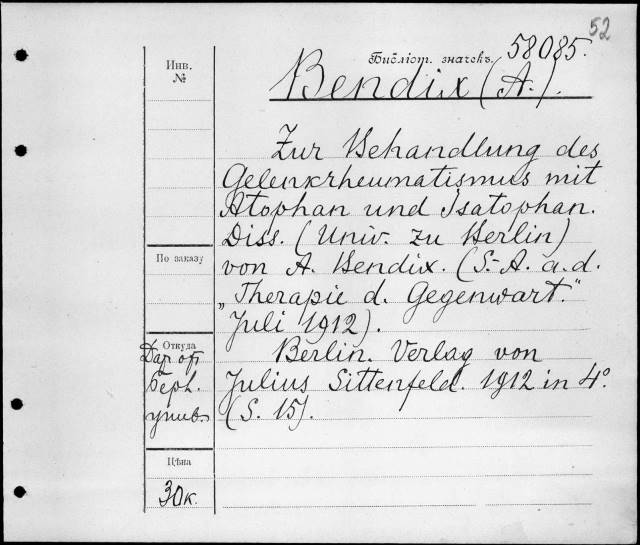 52
Библіот. значекъ. 58085.
Инв.
№
Bendix (A.).
Zur Behandlung des
Gelenkrheumatismus mit
Atophan und Isatophan.
Diss. (Univ. zu Berlin)
По заказу
von A. Bendix. (S.-A. a. d.
„Therapie d. Gegenwart."
Juli 1912).
Откуда
Дар. от
Берл.
унив.
Berlin. Verlag von
Julius Sittenfeld. 1912 in 4°.
(S. 15).
Цѣна
30к.